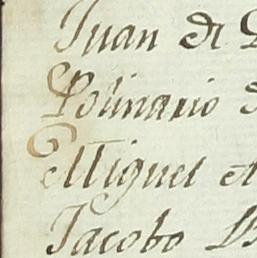 Juan de
Polinario
Miguel
Jacobo